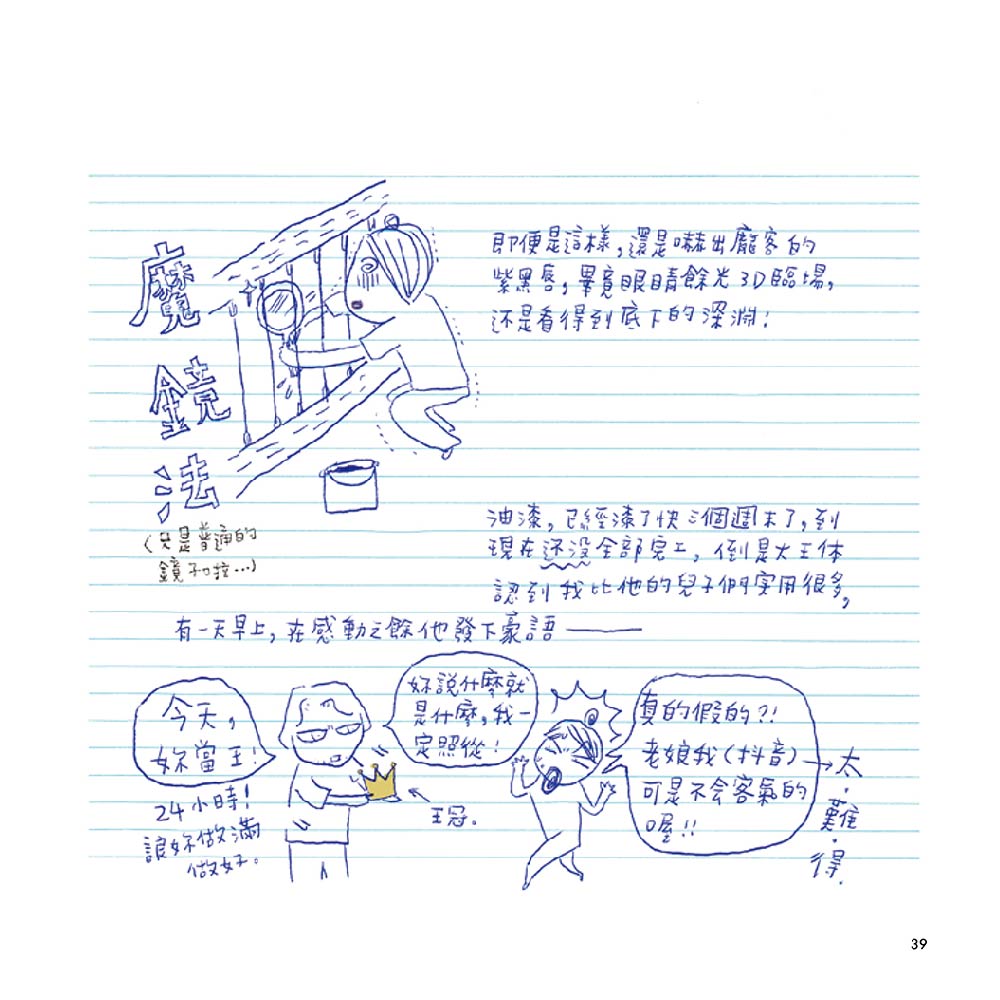 魔鏡法
(只是普通的
鏡子啦…)
即便是這樣,還是嚇出龐客的
紫黑唇,畢竟眼睛餘光3D臨場,
还是看得到底下的深淵!
油漆,已經漆了快三個週末了,到
現在还没全部完工,倒是大王体
認到我比他的兒子們实用很多,
有一天早上,在感動之餘他發下豪語——
今天,
妳當王!
24小時!
讓妳做滿
做好。
妳說什麼就
是什麼,我一
定照從!
王冠。
真的假的?!
老娘我(抖音)
可是不会客氣的
喔!!
太·難·得.
39